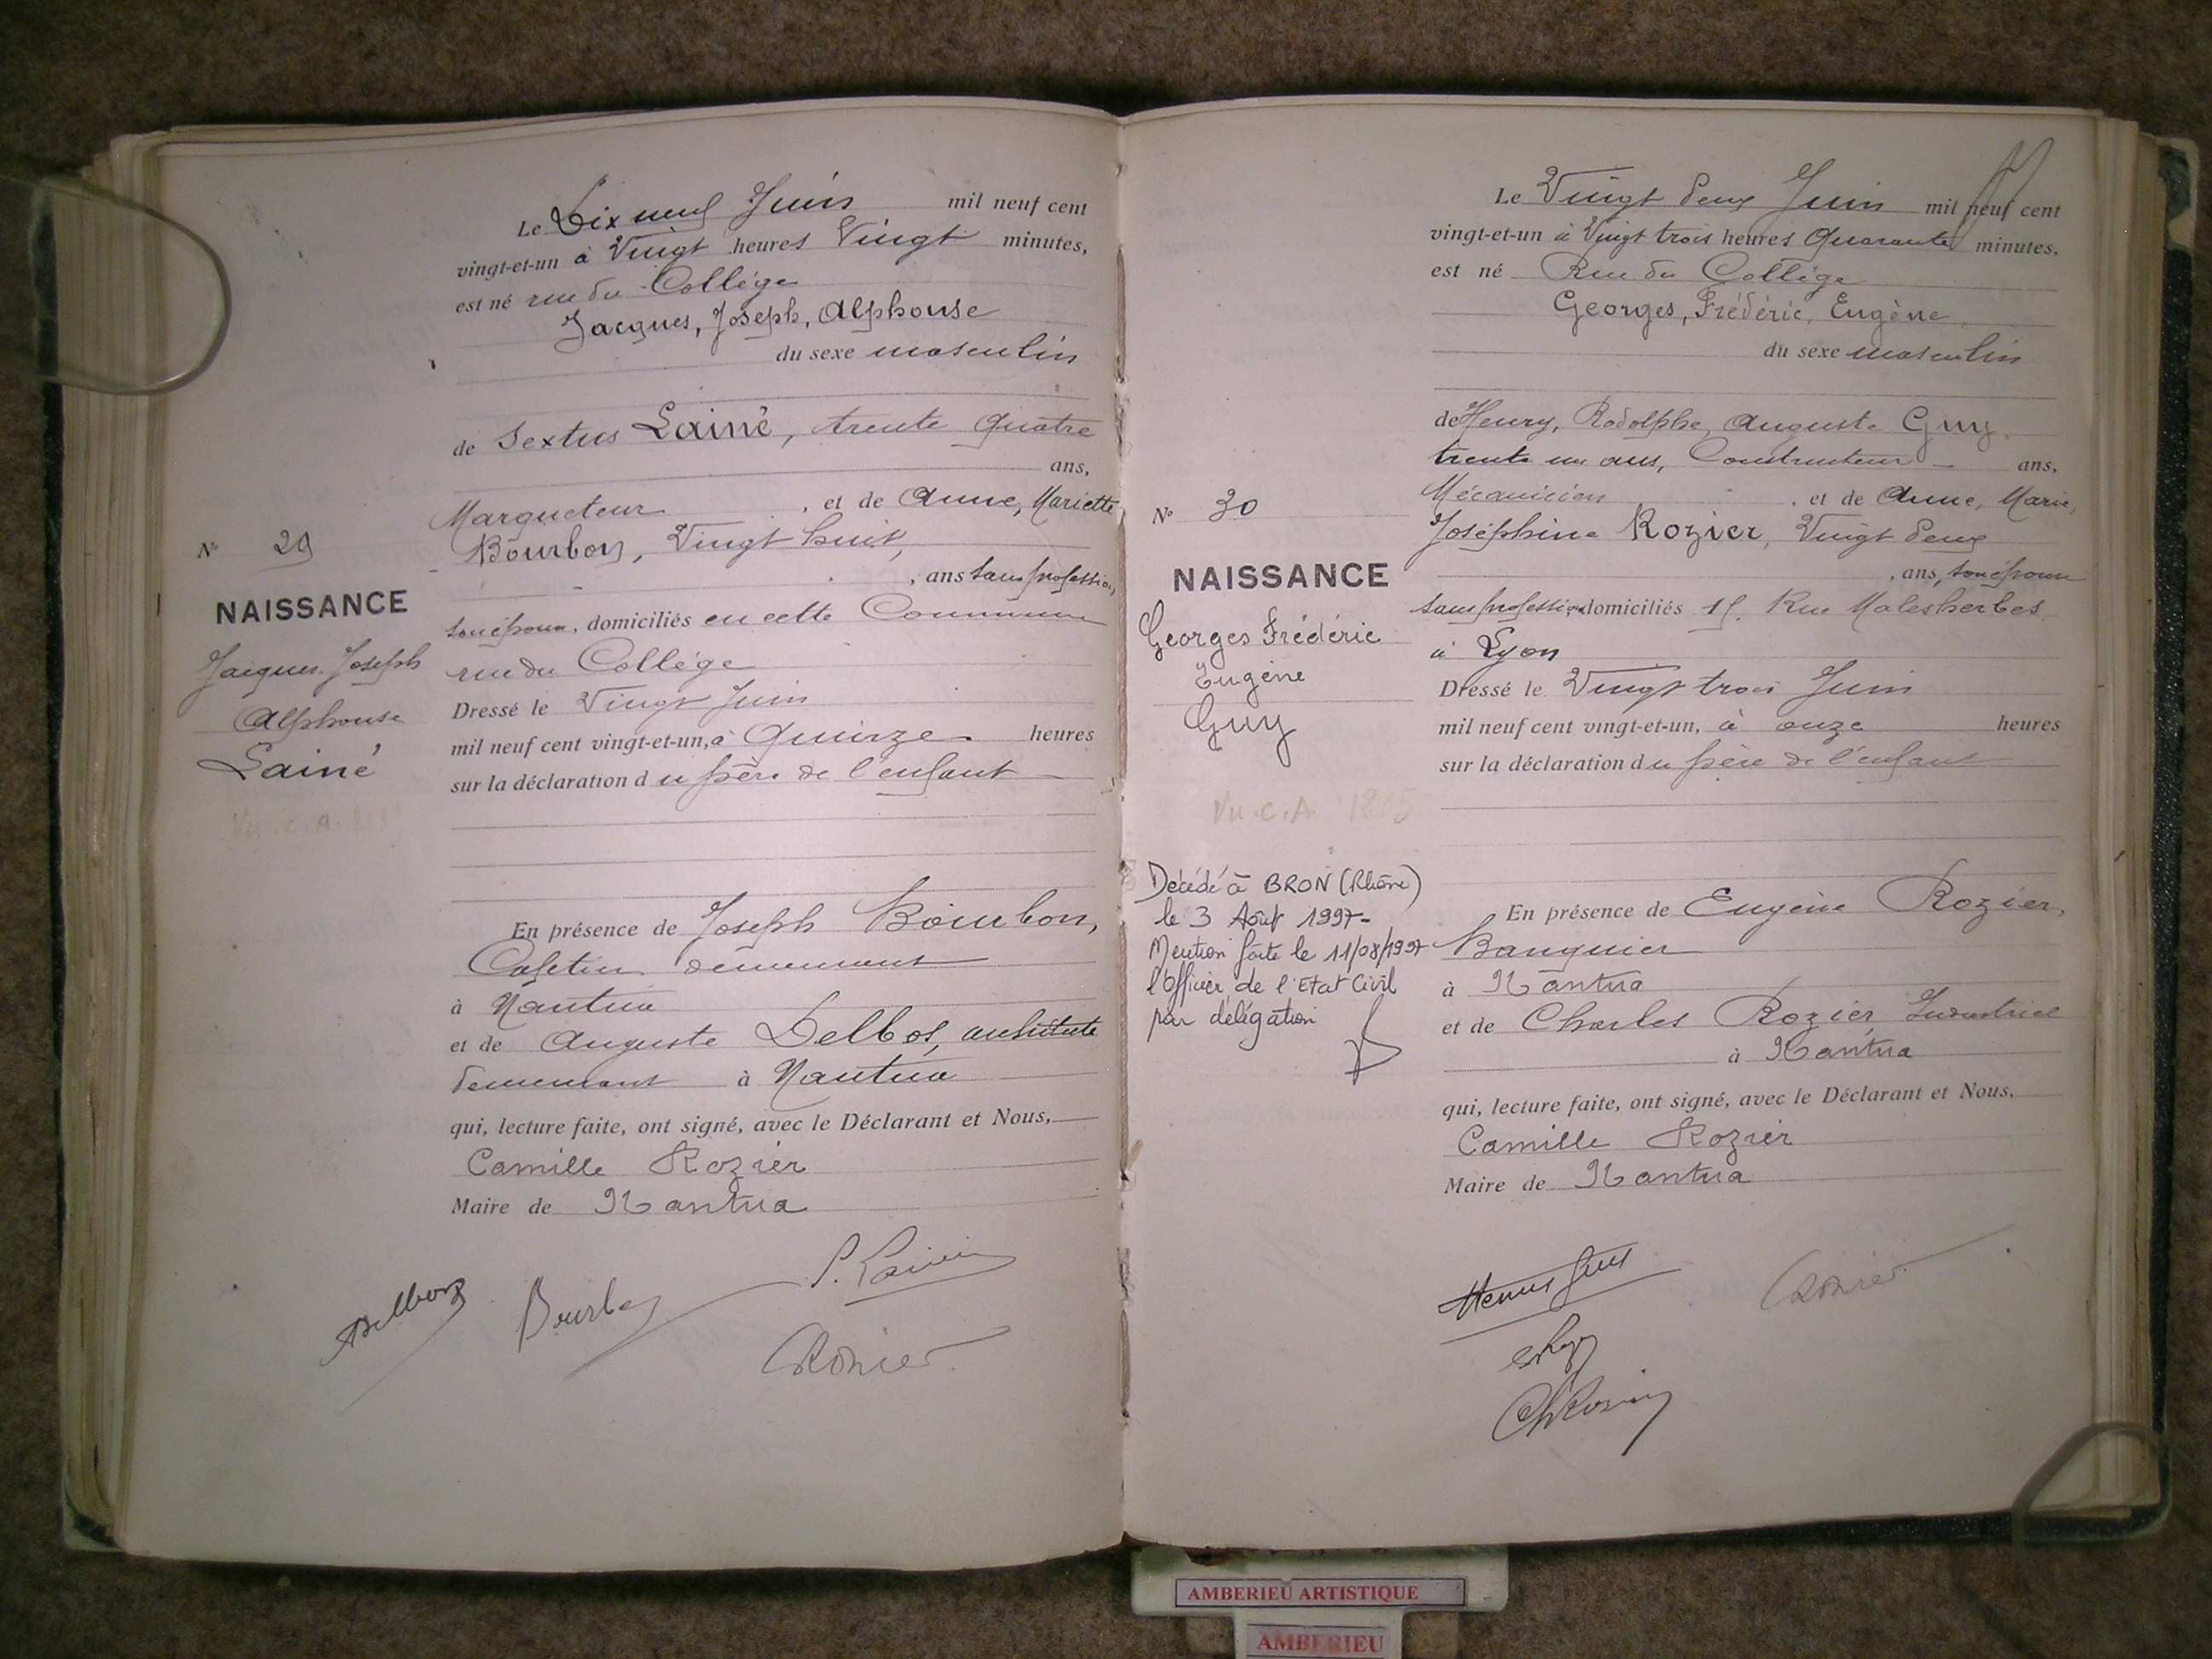 Le Dix neuf Juin mil neuf cent
vingt-et-un à Vingt heures Vingt minutes,
est né rue du Collège
Jacques, Joseph, Alphonse
du sexe masculin
de Sextus Lainé, trente quatre
ans,
Marqueteur, et de Anne, Mariette
Bourbon, Vingt huit,
, ans sans profession,
son épouse, domiciliés en cette Commune
rue du Collège
Dressé le Vingt Juin
mil neuf cent vingt-et-un, à Quinze heures
sur la déclaration du père de l'enfant
En présence de Joseph Bourbon,
Cafetier demeurant
à Nantua
et de Auguste Delbos, architecte
demeurant à Nantua
qui, lecture faite, ont signé, avec le Déclarant et Nous,
Camille Rozier
Maire de Nantua
N° 29
NAISSANCE
Jacques Joseph
Alphonse
Lainé
Le Vingt deux Juin mil neuf cent
vingt-et-un à Vingt trois heures Quarante minutes,
est né Rue du Collège
Georges, Frédéric, Eugène
du sexe masculin
de Henry, Rodolphe, Auguste Guy,
trente un ans, Constructeur ans,
Mécanicien, et de Anne, Marie,
Joséphine Rozier, Vingt deux
, ans, son épouse
sans profession, domiciliés Rue Malesherbes
à Lyon
Dressé le Vingt trois Juin
mil neuf cent vingt-et-un, à onze heures
sur la déclaration du père de l'enfant
En présence de Eugène Rozier,
Banquier
à Nantua
et de Charles Rozier Industriel
à Nantua
qui, lecture faite, ont signé, avec le Déclarant et Nous,
Camille Rozier
Maire de Nantua
N° 30
NAISSANCE
Georges Frédéric
Eugène
Guy
Vu C.A
Décédé à BRON (Rhône)
le 3 Août 1997-
Mention faite le 11/08/1997
l'Officier de l'Etat Civil
par délégation
AMBERIEU ARTISTIQUE
AMBERIEU